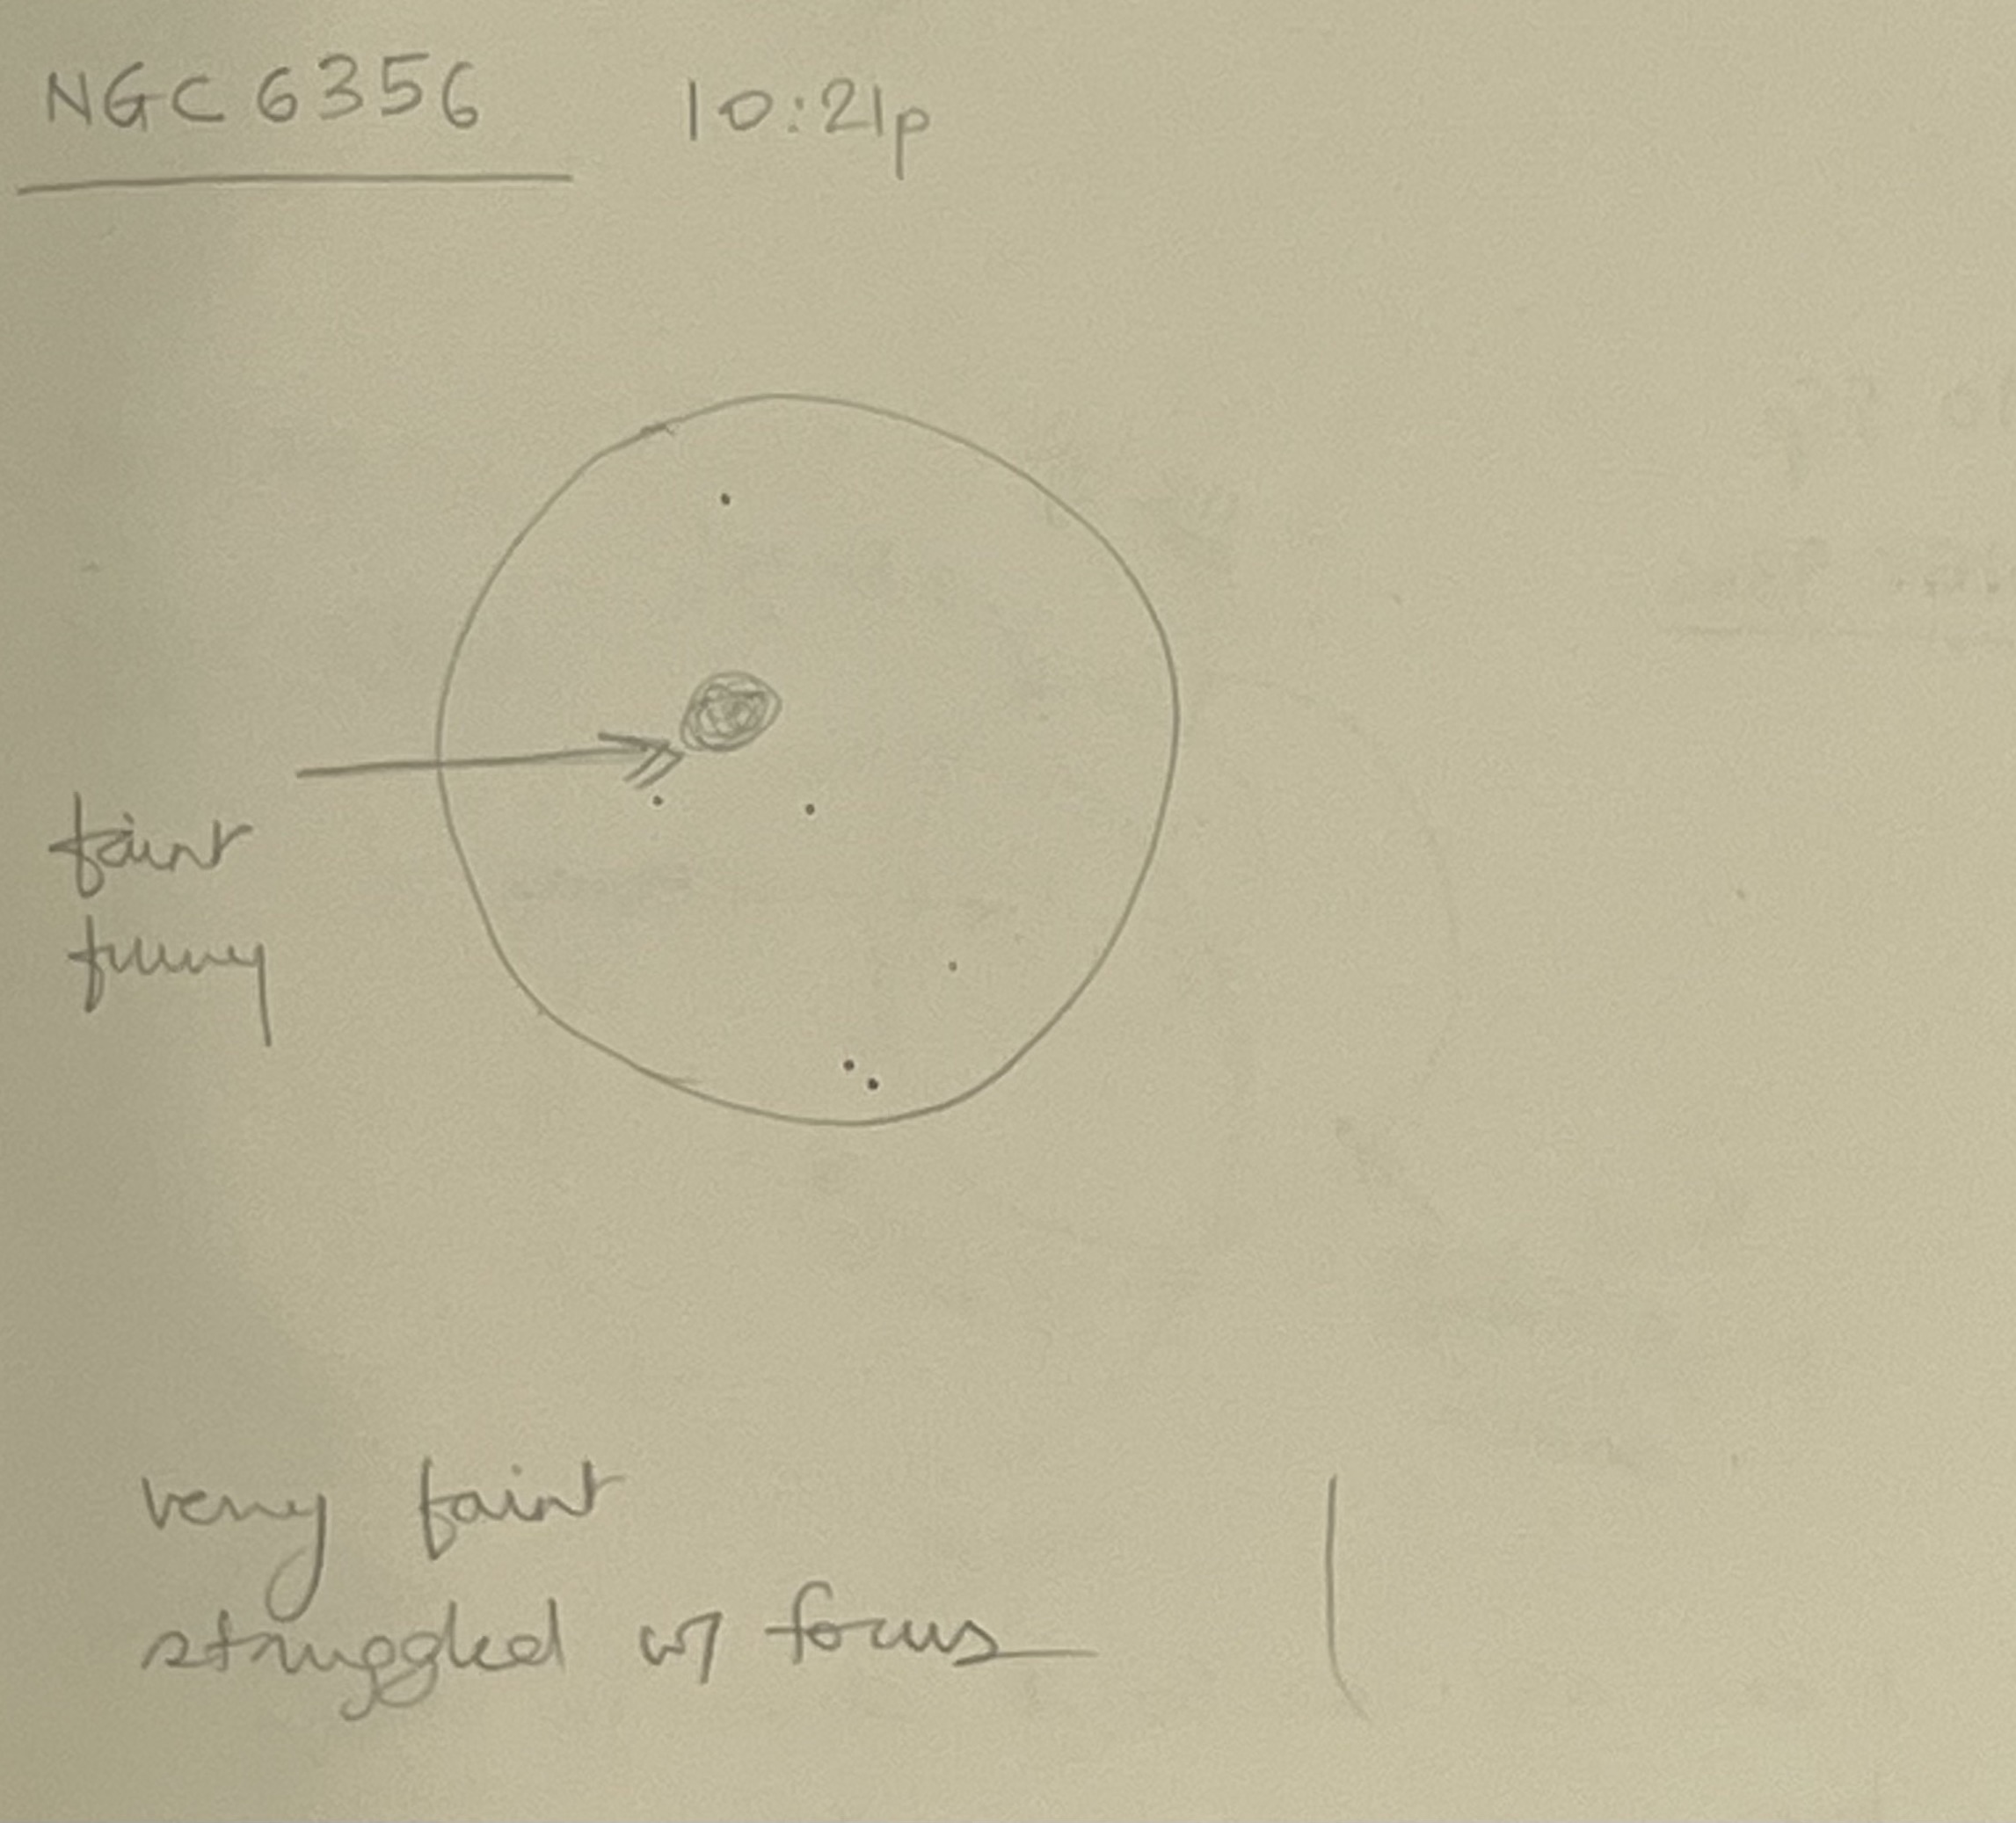 NGC 6356 10:21p
faint
very faint
struggled w/ focus